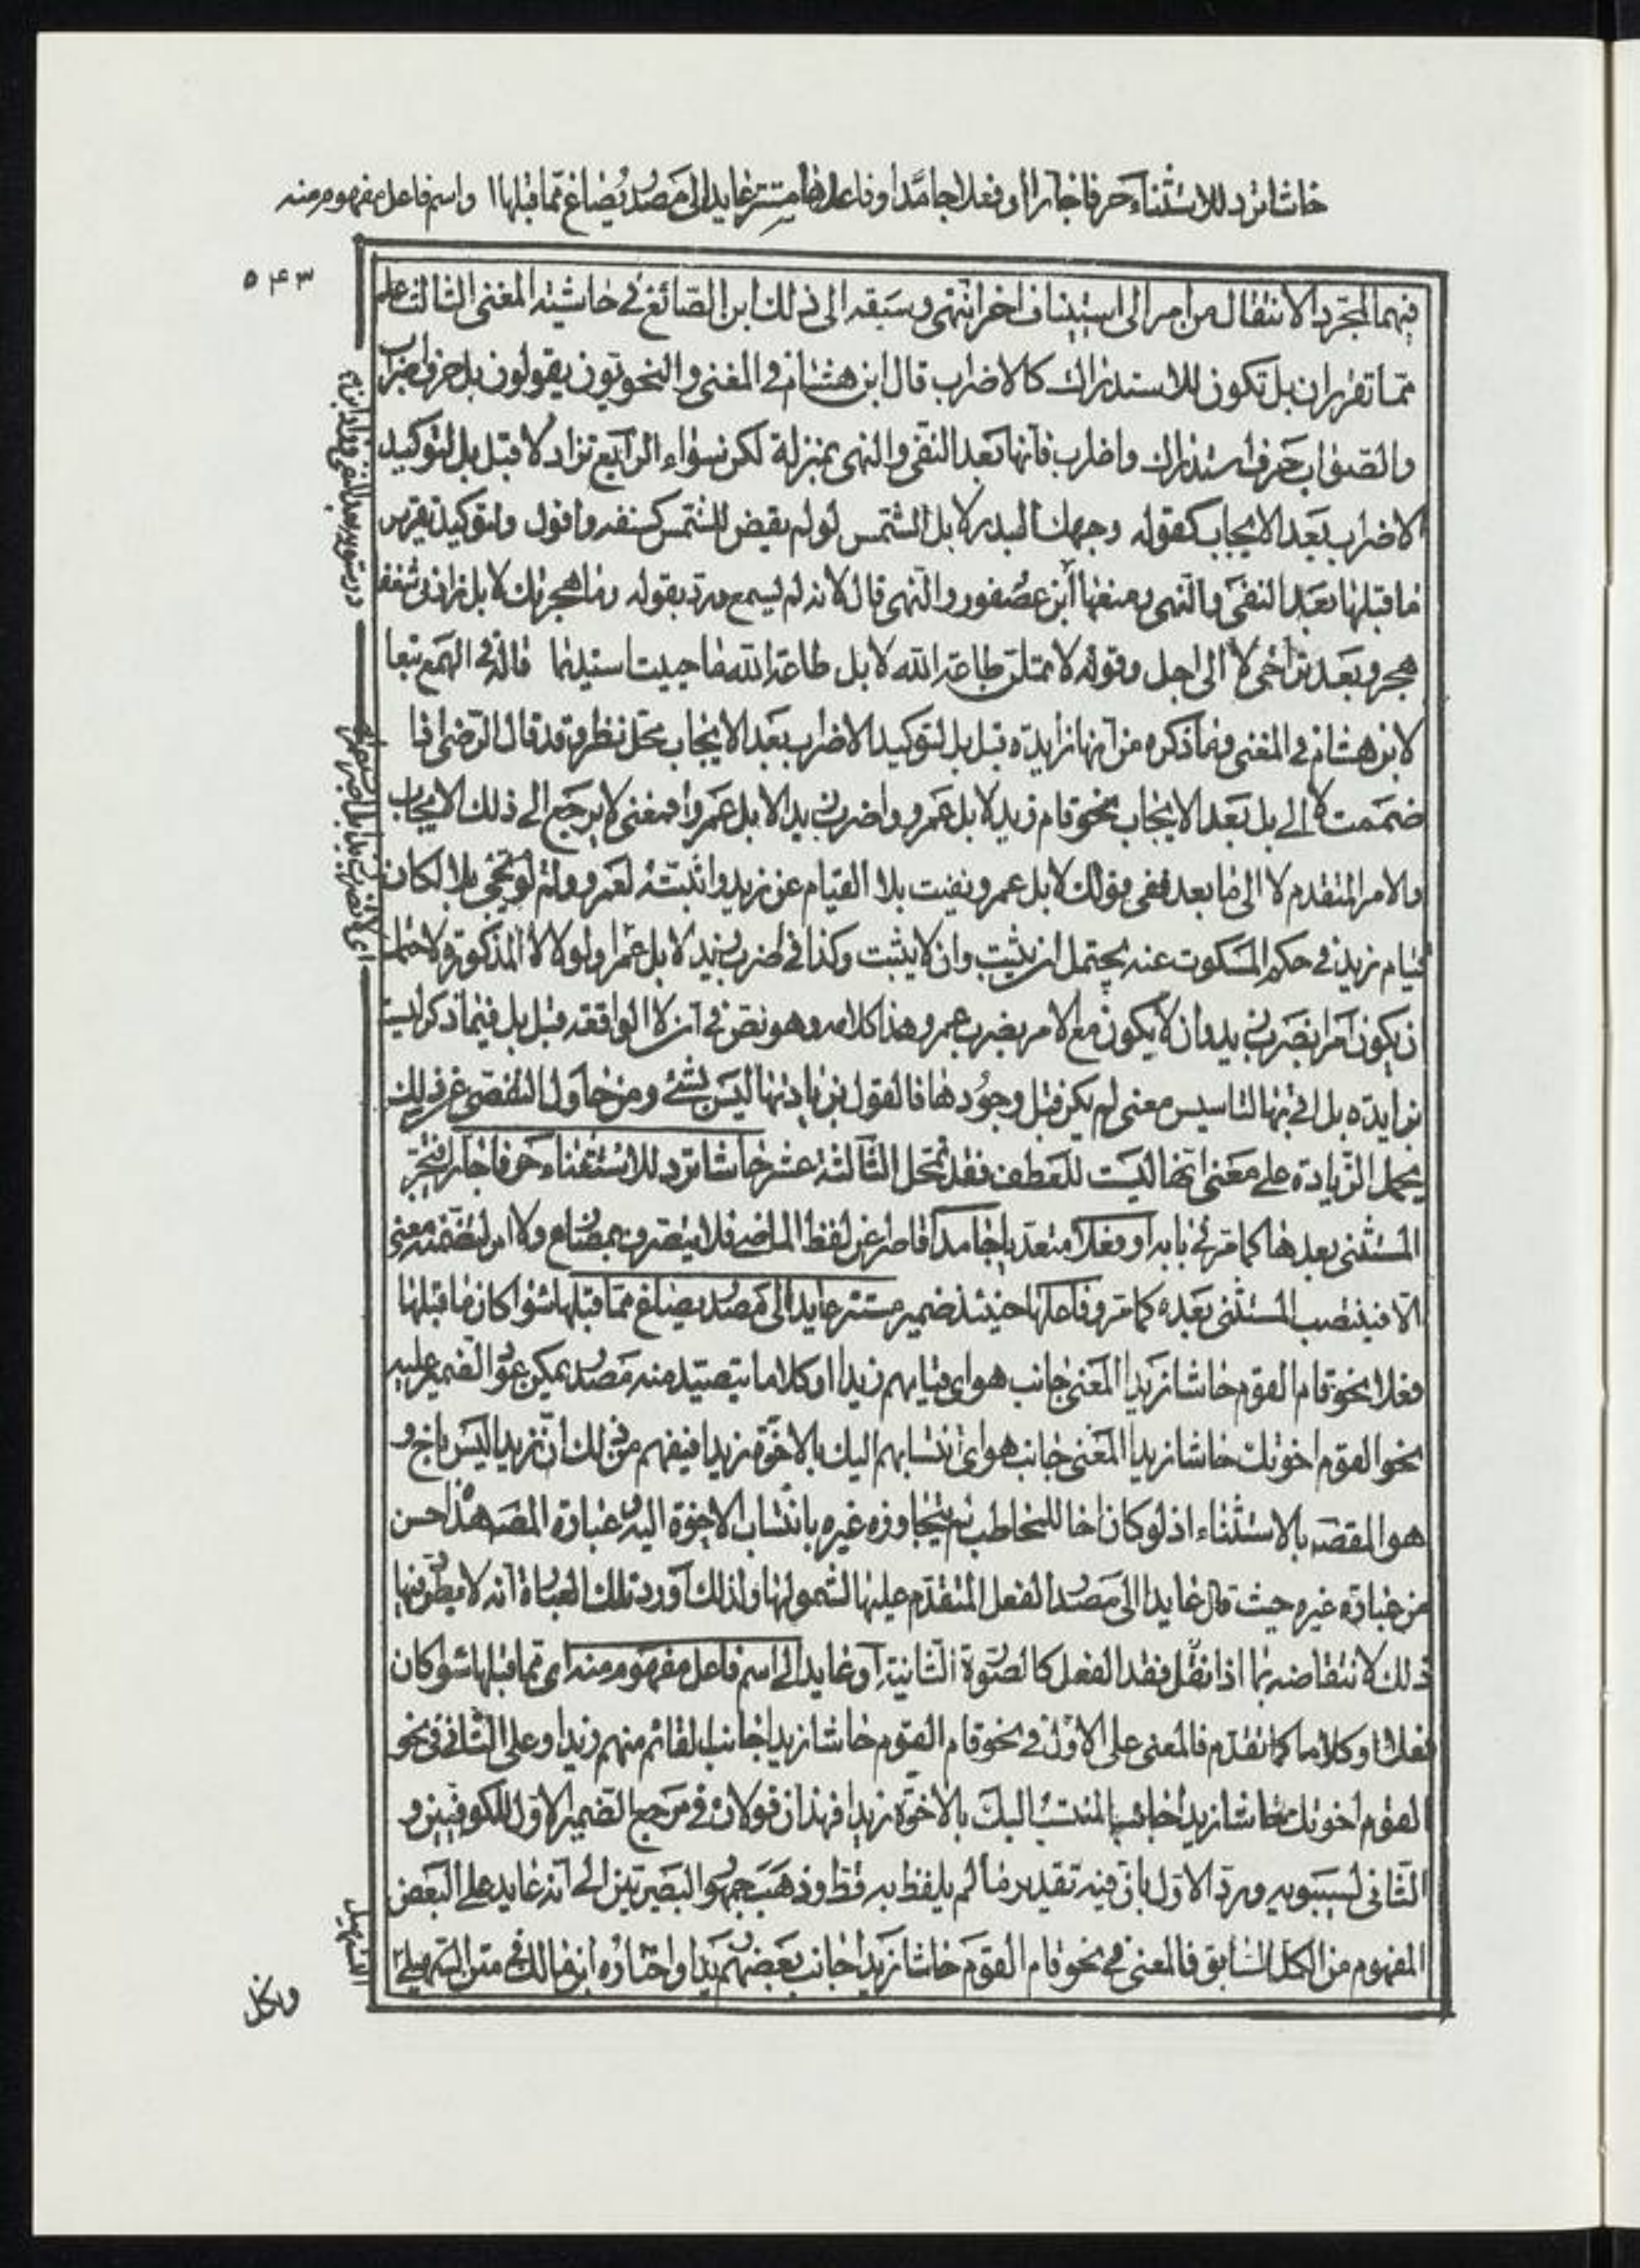 حاشا ترد للاستثناء حرفا جارا او فعلا جامدا وفاعلها مستتر عايد الى مصدر يصاغ مما قبلها او اسم فاعل مفهوم منه
۵۴۳
فيهما لمجرد الانتقال من امر الى استيناف اخر انتهى وسبقه الى ذلك ابن الصائغ في حاشيته المغنى الثالث علم
مما تقرر ان بل تكون للاستدراك كالاضراب قال ابن هشام في المغنى والنحويون يقولون بل حرف اضراب
والصواب حرف استدراك واضراب فانها بعد النفى والنهى بمنزلة لكن سواء الرابع تزاد لا قبل بل لتوكيد
الاضراب بعد الايجاب كقوله وجهك البدر لا بل الشمس لو لم يقض للشمس كسفه وافول ولتوكيد تقرير
ما قبلها بعد النفى والنهى ومنعها ابن عصفور والنهى قال لانه لم يسمع ورد بقوله وما هجرتك لا بل زادنى شغفا
هجر وبعد تراخى لا الى اجل وقوله لا تملن طاعة الله لا بل طاعة الله ما حييت استديما قاله في الهمع تبعا
لابن هشام في المغنى وما ذكره من انها زايدة قبل بل لتوكيد الاضراب بعد الايجاب محل نظر وقد قال الرضى اذا
ضممت لا الى بل بعد الايجاب نحو قام زيد لا بل عمرو واضرب زيدا لا بل عمروا فمعنى لا يرجع الى ذلك الايجاب
والامر المتقدم لا الى ما بعد ففى قولك لا بل عمرو نفيت بلا القيام عن زيد واثبته لعمرو ولو لم تجئ بلا لكان
قيام زيد في حكم المسكوت عنه يحتمل ان يثبت وان لا يثبت وكذا في اضرب زيد لا بل عمرا ولولا لا المذكورة لاحتمل
ان يكون امرا بضرب زيد وان لا يكون مع الامر بضرب عمرو هذا كلامه وهو نص في ان لا الواقعة قبل بل فيما ذكر ليست
بزايدة بل اتى بها لتاسيس معنى لم يكن قبل وجودها فالقول بزيادتها ليس بشئ ومن حاول التفصى عن ذلك
بحمل الزيادة على معنى انها ليست للعطف فقد تمحل الثالثة عشر حاشا ترد للاستثناء حرفا جارا فتجر
المستثنى بعدها كما مر في بابه او فعلا متعديا جامدا قاصرا عن لفظ الماضى فلا يتصرف بمضارع ولا امر لتضمنه معنى
الا فينصب المستثنى بعده كما مر وفاعلها حينئذ ضمير مستتر عايد الى مصدر يصاغ مما قبلها سواء كان ما قبلها
فعلا نحو قام القوم حاشا زيدا المعنى جانب هو اى قيامهم زيدا او كلاما يتصيد منه مصدر يمكن عود الضمير عليه
نحو القوم اخوتك حاشا زيدا المعنى جانب هو اى انتسابهم اليك بالاخوة زيدا فيفهم من ذلك ان زيدا ليس باخ و
هو المقصد بالاستثناء اذ لو كان اخا للمخاطب لم يتجاوزه غيره بانتساب الاخوة اليه وعبارة المصه هذا احسن
من عبارة غيره حيث قال عايد الى مصدر الفعل المتقدم عليها لشمولها ولذلك اورد تلك العبارة انه لا يطرد فيها
ذلك لانتقاضه بما اذا نقل فقد الفعل كالصورة الثانية او عايد الى اسم فاعل مفهوم منه اى مما قبلها سواء كان
فعلا او كلاما كما تقدم فالمعنى على الاول في نحو قام القوم حاشا زيدا جانب القائم منهم زيدا وعلى الثانى في نحو
القوم اخوتك حاشا زيدا جانب المنتسب اليك بالاخوة زيدا فهذان قولان في مرجع الضمير الاول للكوفيين و
الثانى لسيبويه ورد الاول بان فيه تقدير ما لم يلفظ به قط وذهب جمهور البصريين الى انه عايد على البعض
المفهوم من الكل السابق فالمعنى في نحو قام القوم حاشا زيدا جانب بعضهم زيدا واختاره ابن مالك في متن التسهيل